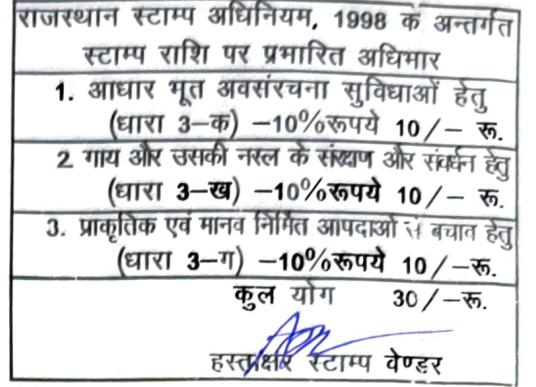 राजस्थान स्टाम्प अधिनियम, 1998 के अन्तर्गत
स्टाम्प राशि पर प्रभारित अधिभार
1. आधार भूत अवसंरचना सुविधाओं हेतु
(धारा 3–क) –10%रूपये 10/– रू.
2 गाय और उसकी नस्ल के संरक्षण और संवर्धन हेतु
(धारा 3–ख) –10%रूपये 10/– रू.
3. प्राकृतिक एवं मानव निर्मित आपदाओं से बचाव हेतु
(धारा 3–ग) –10%रूपये 10/–रू.
कुल योग 30/–रू.
हस्ताक्षर स्टाम्प वेण्डर